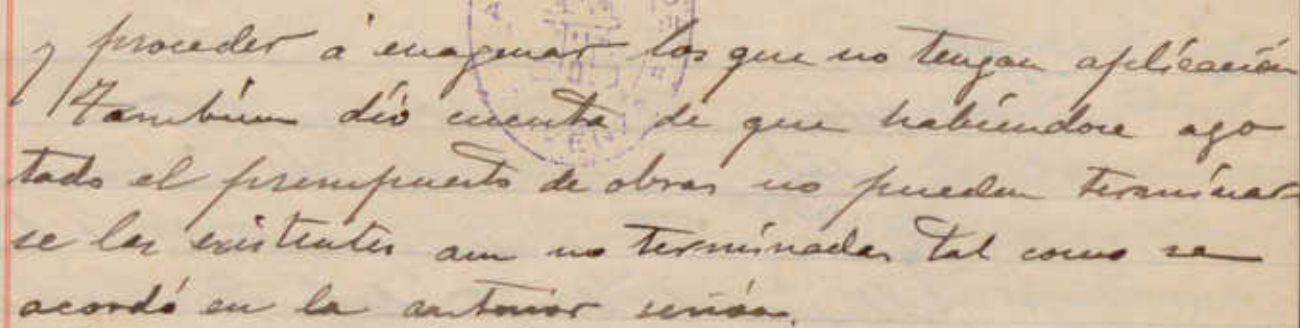 y proceder á enagenar los que no tengan aplicación
Tambien dió cuenta de que habiendose ago
tado el presupuesto de obras no pueden terminar
se las existentes aun no terminadas tal como se
acordó en la anterior sesión.